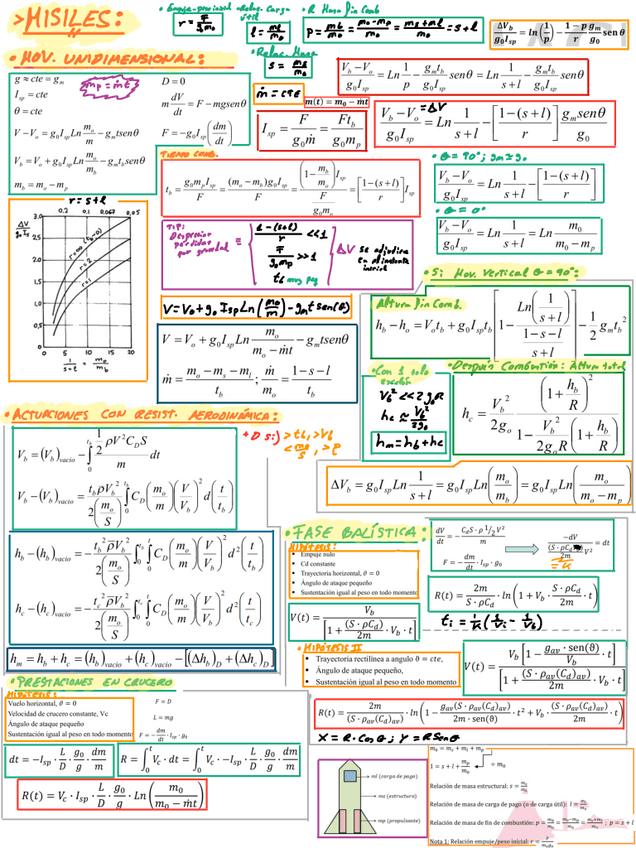 >MISILES:
• Empuje-peso inicial
r = F/(g₀m₀)
• Relac. Carga útil
l = m_l/m₀
• R. Masa fin Comb
p = m_b/m₀ = (m₀-m_p)/m₀ = (m_s+m_l)/m₀ = s+l
ΔV_b/(g₀I_sp) = ln(1/p) - ((1-p)/r)(g_m/g₀) senθ
• Relac. Masa
s = m_s/m₀
• MOV. UNIDIMENSIONAL:
g ≈ cte = g_m
I_sp = cte
θ = cte
m_p = ṁt
D = 0
m dV/dt = F - mg senθ
V - V_o = g₀I_sp Ln m_o/m - g_m t senθ
F = -g₀I_sp(dm/dt)
V_b = V_o + g₀I_sp Ln m_o/m_b - g_m t_b senθ
m_b = m_o - m_p
ṁ = cte
m(t) = m₀ - ṁt
(V_b - V_o)/(g₀I_sp) = Ln 1/p - (g_m t_b)/(g₀I_sp) senθ = Ln 1/(s+l) - (g_m t_b)/(g₀I_sp) senθ
I_sp = F/(g₀ṁ) = Ft_b/(g₀m_p)
= ΔV
(V_b - V_o)/(g₀I_sp) = Ln 1/(s+l) - [(1-(s+l))/r] (g_m senθ)/g₀
TIEMPO COMB.
t_b = (g₀m_pI_sp)/F = ((m_o - m_b)g₀I_sp)/F = ((1 - m_b/m_o)I_sp)/(F/(g₀m_o)) = [(1-(s+l))/r] I_sp
• θ = 90°; g_m ≈ g₀
(V_b - V_o)/(g₀I_sp) = Ln 1/(s+l) - [(1-(s+l))/r]
• θ = 0°
(V_b - V_o)/(g₀I_sp) = Ln 1/(s+l) = Ln m₀/(m₀ - m_p)
r = s+l
0,2 0,1 0,067 0,05
3,0
ΔV/(g₀ I_s)
2,5
2,0
1,5
1,0
0,5
0
r=∞ (t_b=0)
r=2
r=1
0 5 10 15 20
1/(s+l) = m₀/m_b
TIP:
Despreciar
perdidas
por gravedad
(1-(s+l))/r << 1
F/(g₀m_p) >> 1
t_b muy peq
ΔV se adquiere
en el instante
inicial
V = V₀ + g₀ I_sp Ln(m₀/m) - g_m t sen(θ)
V = V_o + g₀I_sp Ln m_o/(m_o - ṁt) - g_m t senθ
ṁ = (m_o - m_s - m_l)/t_b; ṁ/m_o = (1-s-l)/t_b
• Si Mov. Vertical θ = 90°:
Altura fin Comb.
h_b - h_o = V_o t_b + g₀I_sp t_b [1 - Ln(1/(s+l))/((1-s-l)/(s+l))] - 1/2 g_m t_b²
• Con 1 solo
escalón
V_b² << 2g₀R
h_c ≈ V_b²/2g₀
h_m = h_b + h_c
• Después Combustión: Altura total
h_c = V_b²/2g_o · (1 + h_b/R)/(1 - V_b²/(2g_oR)(1 + h_b/R))
ΔV_b = g₀I_sp Ln 1/(s+l) = g₀I_sp Ln(m_o/m_b) = g₀I_sp Ln(m_o/(m_o - m_p))
• ACTUACIONES CON RESIST. AERODINÁMICA:
+D si:) > t_b, > V_b
< m₀/S, > ρ
V_b = (V_b)_vacio - ∫₀^{t_b} (1/2 ρV²C_DS)/m dt
V_b - (V_b)_vacio = -(t_bρV_b²)/(2(m_o/S)) ∫₀¹ C_D(m_o/m)(V/V_b)² d(t/t_b)
h_b - (h_b)_vacio = -(t_b²ρV_b²)/(2(m_o/S)) ∫₀¹∫₀ C_D(m_o/m)(V/V_b)² d²(t/t_b)
h_c - (h_c)_vacio = -(t_c²ρV_b²)/(2(m_o/S)) ∫₀¹∫₀ C_D(m_o/m)(V/V_b)² d²(t/t_c)
h_m = h_b + h_c = (h_b)_vacio + (h_c)_vacio - [(Δh_b)_D + (Δh_c)_D]
• FASE BALÍSTICA:
HIPÓTESIS:
• Empuje nulo
• Cd constante
• Trayectoria horizontal, θ = 0
• Ángulo de ataque pequeño
• Sustentación igual al peso en todo momento
dV/dt = -(C_dS · ρ 1/2 V²)/m
F = -dm/dt · I_sp · g₀
-dV/((S·ρC_d)/2m V²) = dt
= K
R(t) = 2m/(S·ρC_d) · ln(1 + V_b · (S·ρC_d)/2m · t)
V(t) = V_b/[1 + (S·ρC_d)/2m · V_b · t]
t_i = 1/K (1/V_i - 1/V_b)
• HIPÓTESIS II
• Trayectoria rectilínea a angulo θ = cte,
• Ángulo de ataque pequeño,
• Sustentación igual al peso en todo momento
V(t) = V_b[1 - (g_av · sen(θ))/V_b · t]/[1 + (S·ρ_av(C_d)_av)/2m · V_b · t]
R(t) = 2m/(S·ρ_av(C_d)_av) · ln(1 - (g_av(S·ρ_av(C_d)_av))/(2m·sen(θ)) · t² + V_b · (S·ρ_av(C_d)_av)/2m · t)
X = R·Cosθ; Y = R Senθ
• PRESTACIONES EN CRUCERO
HIPÓTESIS:
Vuelo horizontal, θ = 0
Velocidad de crucero constante, Vc
Ángulo de ataque pequeño
Sustentación igual al peso en todo momento
F = D
L = mg
F = -dm/dt · I_sp · g₀
dt = -I_sp · L/D · g₀/g · dm/m
R = ∫₀^t V_c · dt = ∫₀^t V_c · -I_sp · L/D · g₀/g · dm/m
R(t) = V_c · I_sp · L/D · g₀/g · Ln(m₀/(m₀ - ṁt))
ml (carga de pago)
ms (estructura)
mp (propulsante)
m₀ = m_s + m_l + m_p
1 = s + l + m_p/m₀
÷ m₀
Relación de masa estructural: s = m_s/m₀
Relación de masa de carga de pago (o de carga útil): l = m_l/m₀
Relación de masa de fin de combustión: p = m_b/m₀ = (m₀-m_p)/m₀ = (m_s+m_l)/m₀; p = s + l
Nota 1: Relación empuje/peso inicial: r = F/(m₀g₀)